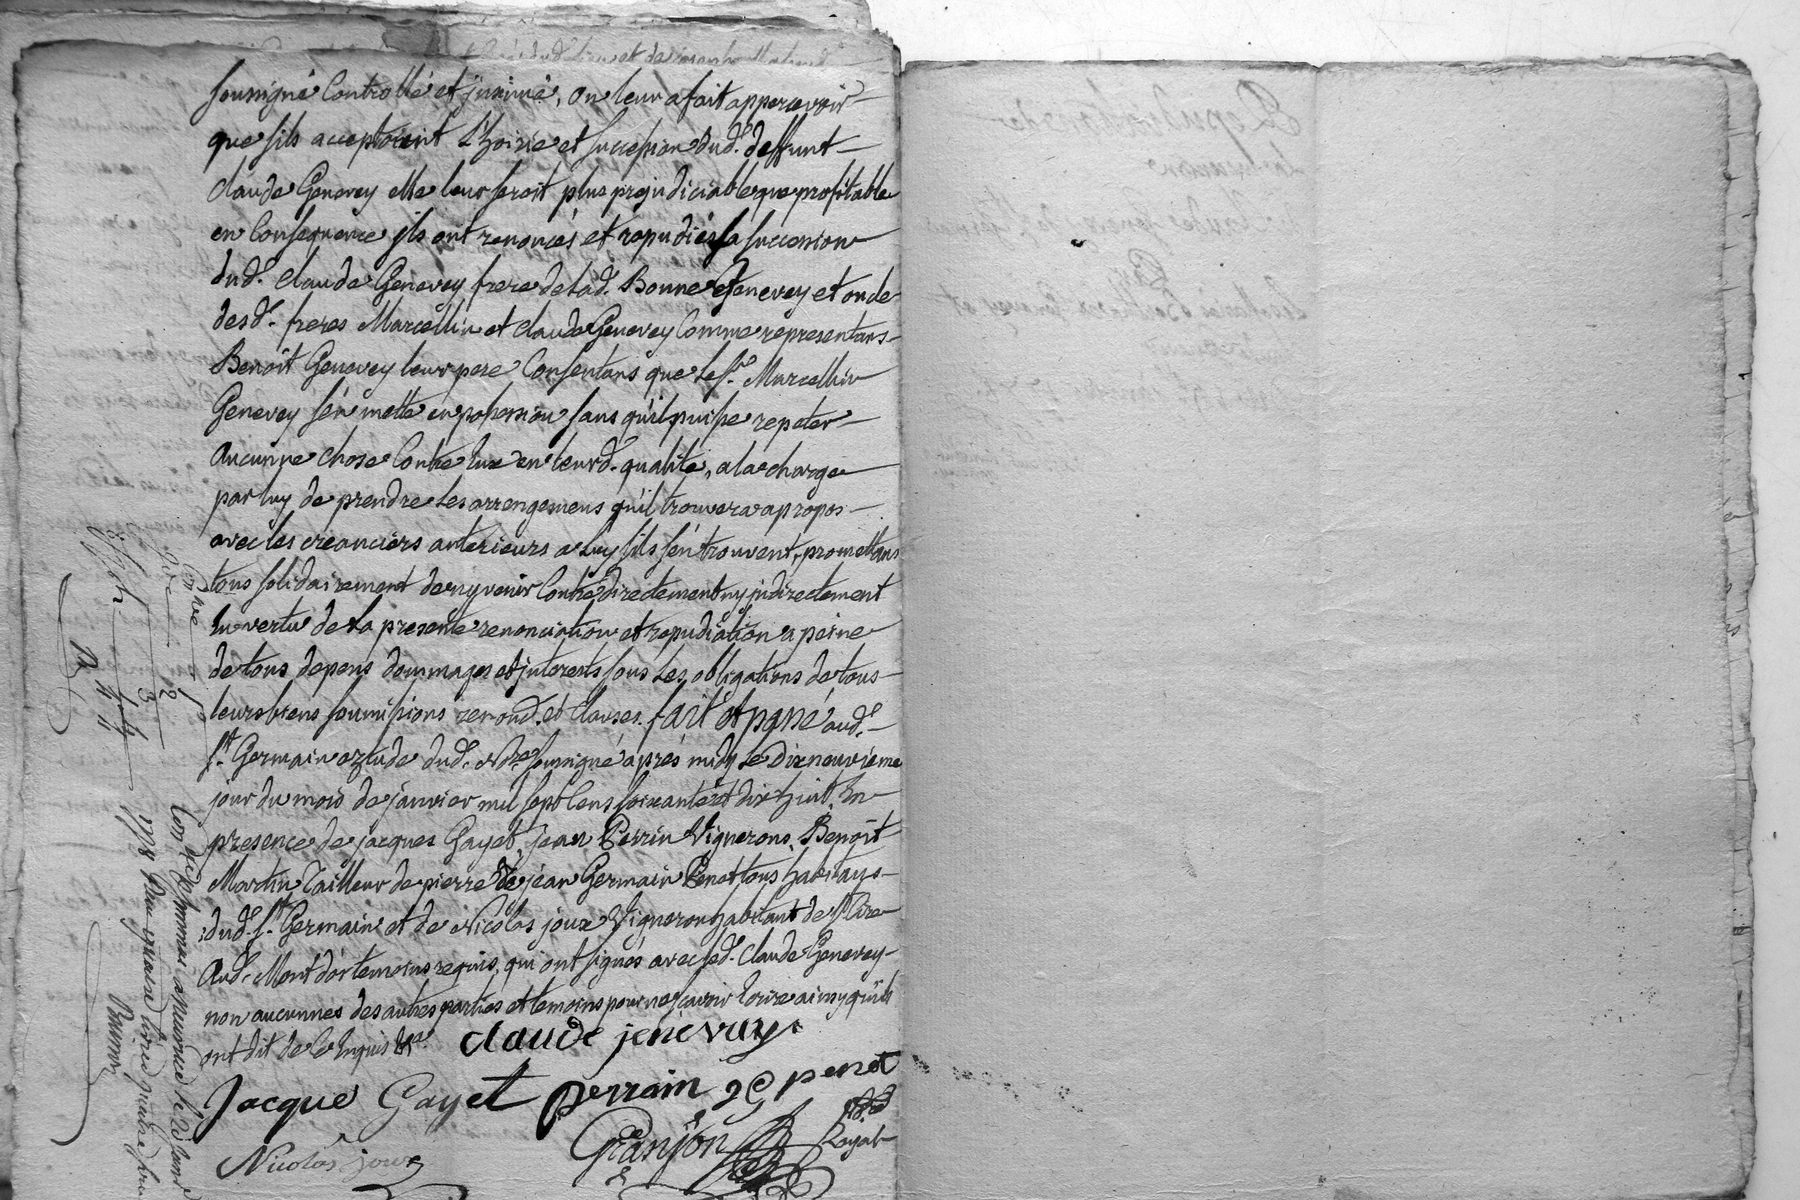 soussigné Controllé et jnsinué, on leur a fait appercevoir
que sils acceptoient L'hoirie et succession dud. deffunt
claude Genevey elle leur seroit plus prejudiciable que profitable
en Consequence jls ont renoncés et repudiés la succession
dud. claude Genevey frere de lad. Bonne Genevey et oncle
desd. freres Marcellin et claude Genevey Comme representans
Benoit Genevey leur pere Consentans que Le sr. Marcellin
Genevey s'en mette en possession sans qu'il puisse repeter
aucunne chose Contre Eux en leurd. qualité, a la charge
par luy de prendre Les arrengemens qu'il trouvera a propos
avec les creanciers anterieurs a Luy sils s'en trouvent, promettans
tous solidairement de ny venir Contre directement ny jndirectement
En vertu de La presente renonciation et repudiation a peine
de tous depens dommages et jnterests sous Les obligations de tous
leurs biens soumissions renond. et clauses. fait et passé aud.
st. Germain etude dud. Nre. soussigné après midy Le Dix neuvieme
jour du mois de janvier mil sept Cens soixante et dix huit. En
presence de jacques Gayet, jean Perrin Vignerons, Benoît
Martin Tailleur de pierre de jean Germain Penet tous habitans
dud. st. Germain et de Nicolas joux Vigneron habitant de st Cire
Aud. Mont d'or temoins requis, qui ont signés avec led. claude Genevey
non aucunnes des autres parties et temoins pour ne sçavoir Ecrire ainsy qu'ils
ont dit de ce Enquis
claude jenevay
Jacque Gayet perrain JG penet
Granjon
Nicolas joux
Royal